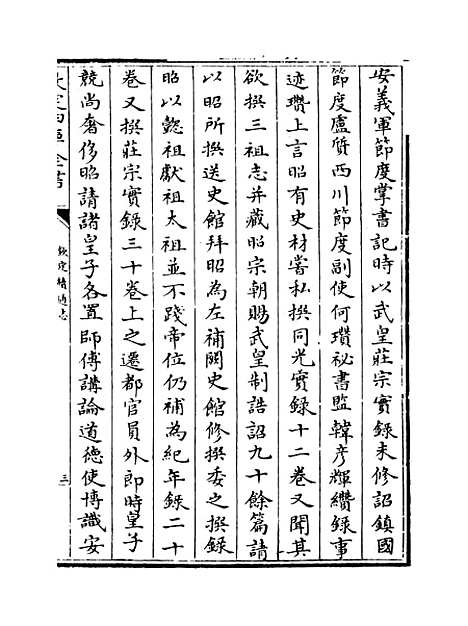 安義軍節度掌書記時以武皇莊宗實錄未修詔鎮國
節度盧質西川節度副使何瓚祕書監韓彦輝纘錄事
迹瓚上言昭有史材嘗私撰同光實錄十二卷又聞其
欲撰三祖志并藏昭宗朝賜武皇制誥詔九十餘篇請
以昭所撰送史館拜昭為左補闕史館修撰委之撰録
昭以懿祖獻祖太祖並不踐帝位仍補為紀年録二十
卷又撰莊宗實錄三十卷上之遷都官員外郎時皇子
競尚奢侈昭請諸皇子各置師傅講論道德使博識安
欽定四庫全書
欽定續通志
三